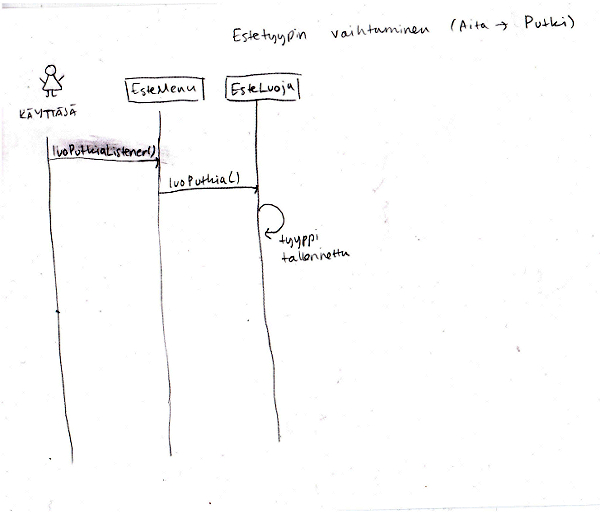 Estetyypin vaihtaminen (Aita → Putki)
KÄYTTÄJÄ
EsteMenu
EsteLuoja
luoPutkiaListener()
luoPutkia()
tyyppi
tallennettu